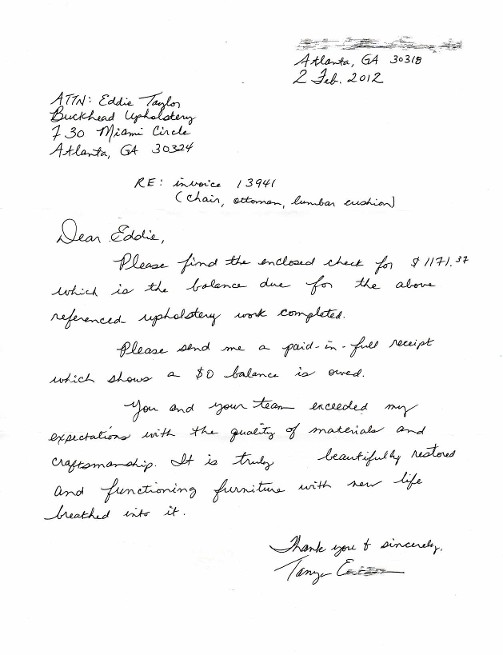 Atlanta, GA 30318
2 Feb. 2012
ATTN: Eddie Taylor
Buckhead Upholstery
730 Miami Circle
Atlanta, GA 30324
RE: invoice 13941
(chair, ottoman, lumbar cushion)
Dear Eddie,
Please find the enclosed check for $1171.37
which is the balance due for the above
referenced upholstery work completed.
Please send me a paid-in-full receipt
which shows a $0 balance is owed.
You and your team exceeded my
expectations with the quality of materials and
craftsmanship. It is truly beautifully restored
and functioning furniture with new life
breathed into it.
Thank you & sincerely,
Tanya